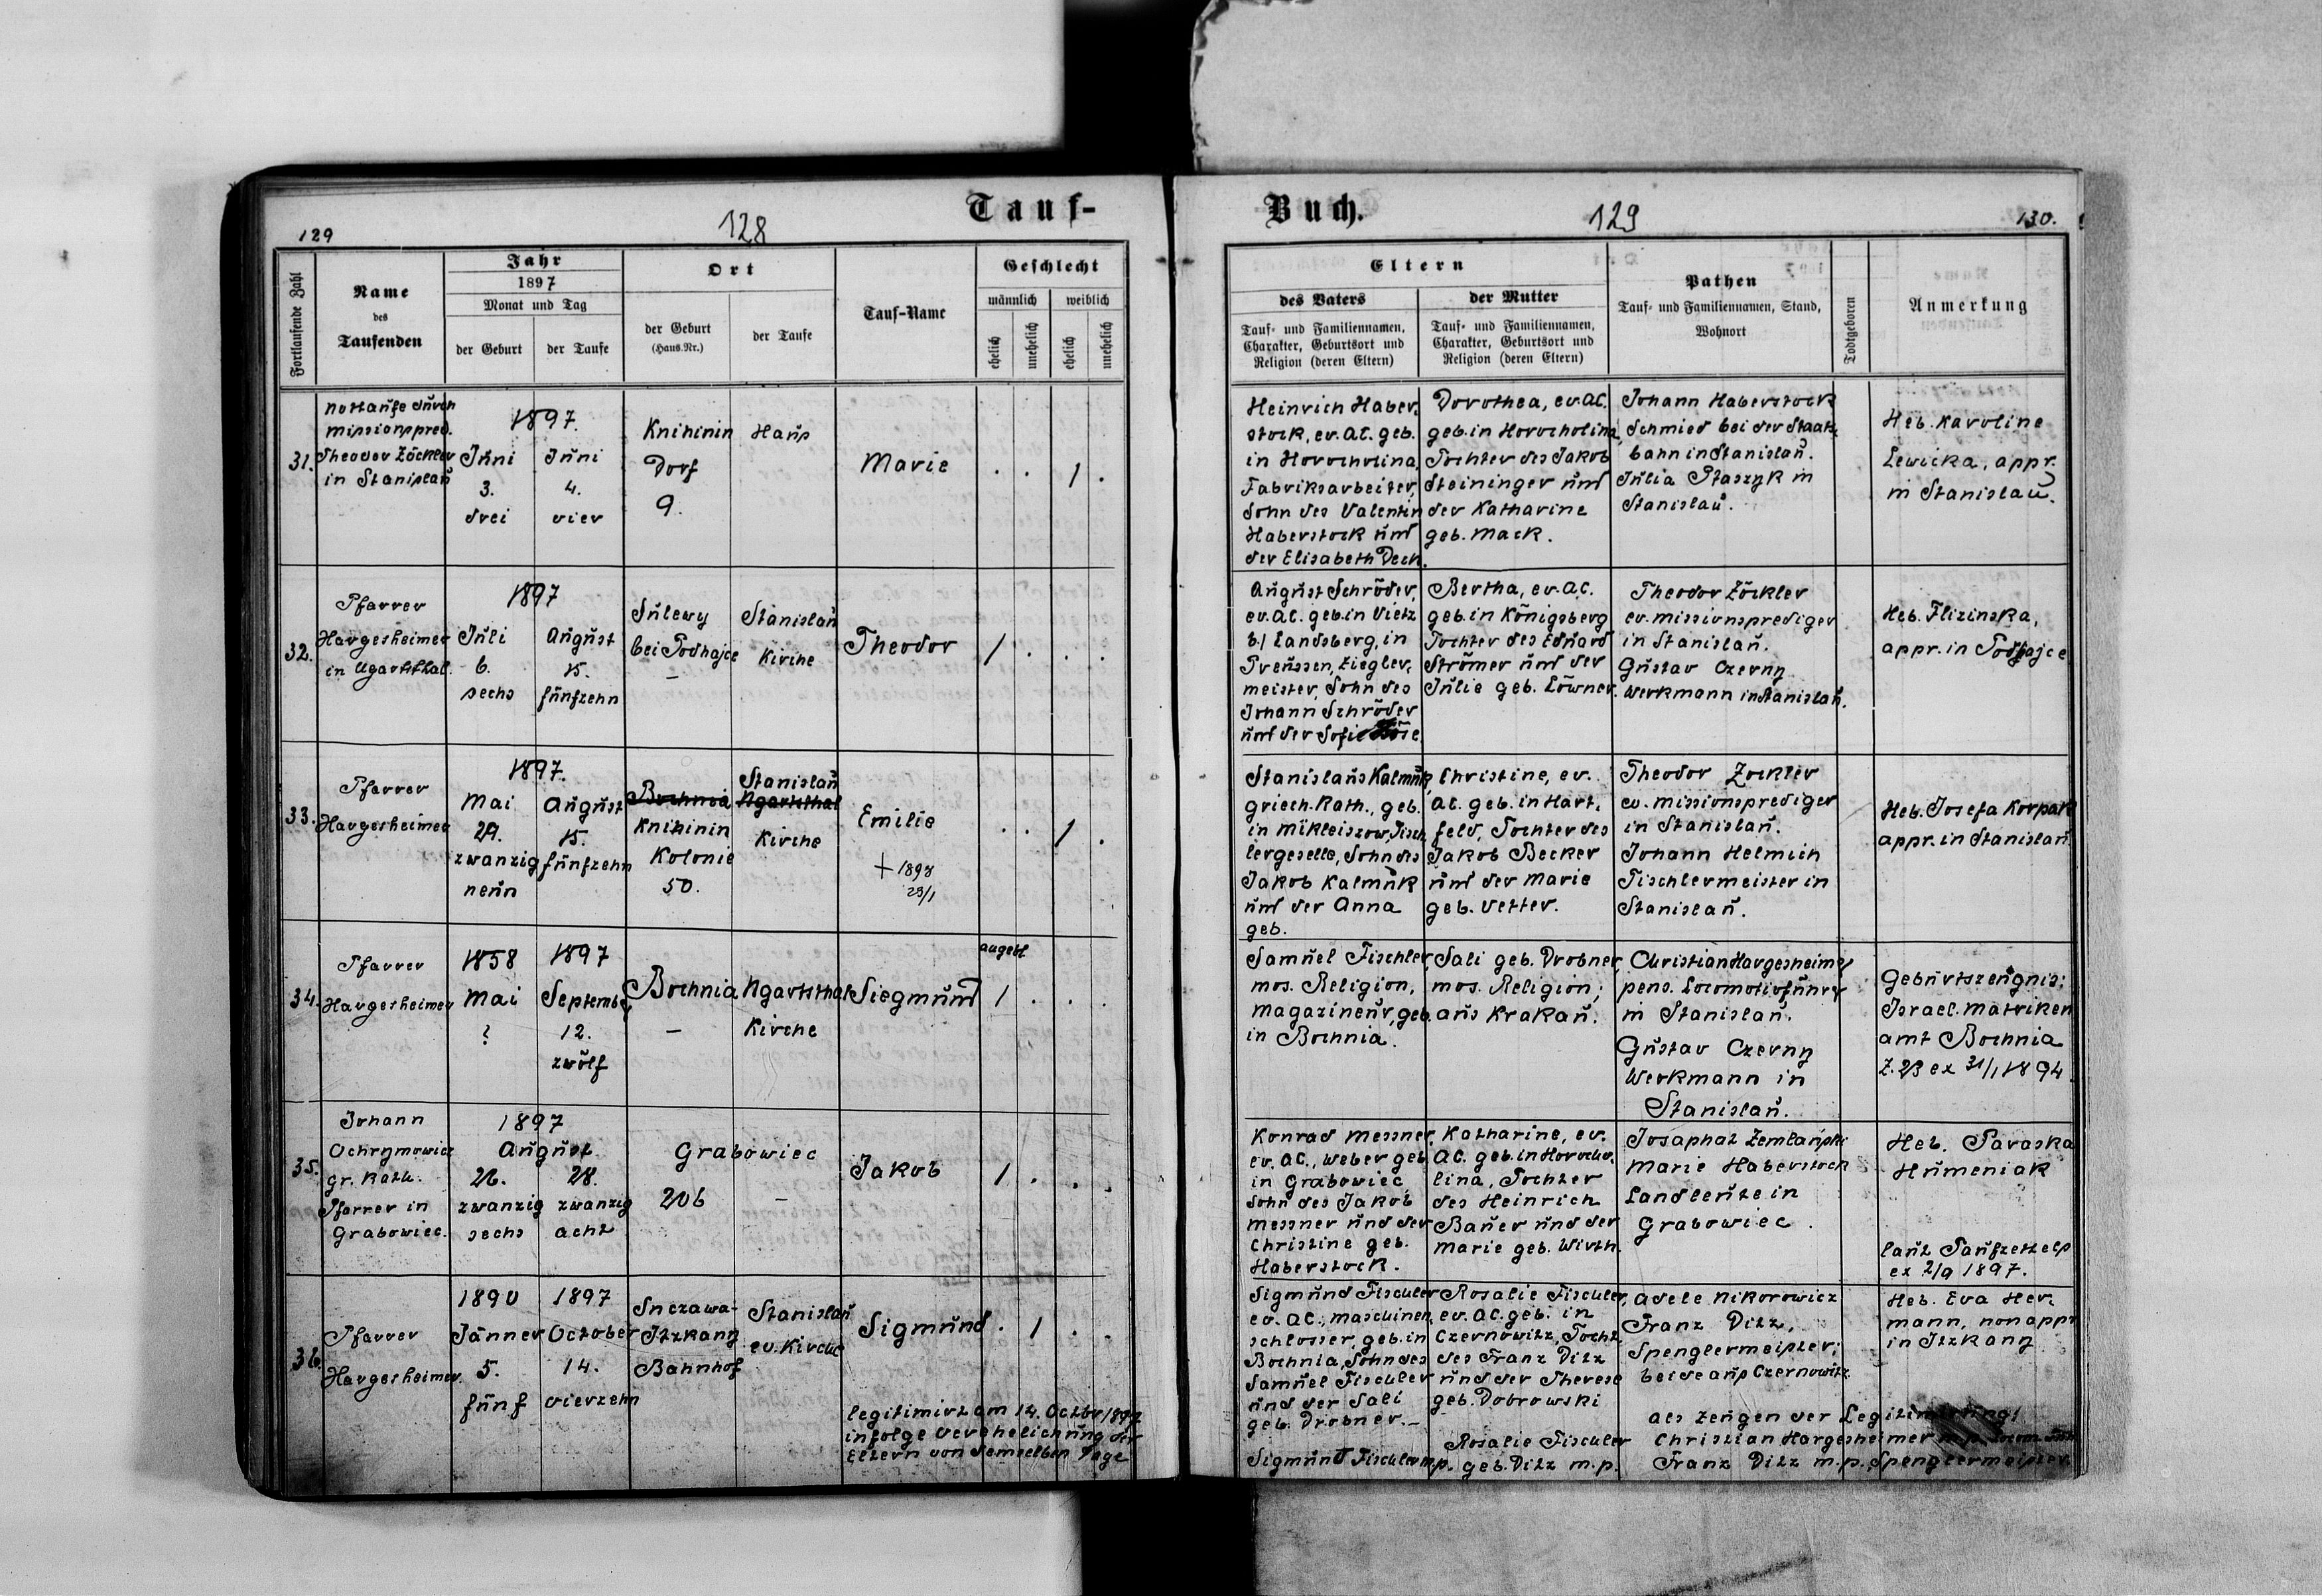 Tauf-
128
129
Fortlaufende Zahl
Name
des
Taufenden
Jahr
1897
Monat und Tag
der Geburt
der Taufe
Ort
der Geburt
(Haus.Nr.)
der Taufe
Tauf-Name
Geschlecht
männlich
weiblich
ehelich
unehelich
ehelich
unehelich
31.
Nottaufe durch
missionspred.
Theodor Zöckler
in Stanislau
1897.
Juni
3.
drei
Juni
4.
vier
Knihinin
Dorf
9.
Haus
Marie
. . 1 .
32.
Pfarrer
Hargesheimer
in Ugartsthal
1897
Juli
6.
sechs
August
15.
fünfzehn
Sulewy
bei Podhajce
–
Stanislau
Kirche
Theodor
1 . . .
33.
Pfarrer
Hargesheimer
1897.
Mai
29.
zwanzig
neun
August
15.
fünfzehn
Bochnia
Knihinin
Kolonie
50.
Stanislau
Ugartsthal
Kirche
Emilie
+ 1898
23/1
. . 1 .
34.
Pfarrer
Hargesheimer
1858
Mai
?
1897
September
12.
zwölf
Bochnia
–
Ugartsthal
Kirche
Siegmund
angebl
1 . . .
35.
Johann
Ochrymowicz
gr. Kath.
Pfarrer in
Grabowiec.
1897
August
26.
zwanzig
sechs
28.
zwanzig
acht
Grabowiec
206
–
Jakob
1 . . .
36.
Pfarrer
Hargesheimer.
1890
Jänner
5.
fünf
1897
October
14.
vierzehn
Suczawa-
Itzkany
Bahnhof
Stanislau
ev. Kirche
Sigmund
. 1 . .
legitimirt am 14. Octbr 1897
infolge Verehelichung der
Eltern von demselben Tage
Buch.
129
130.
Eltern
des Vaters
Tauf- und Familiennamen,
Charakter, Geburtsort und
Religion (deren Eltern)
der Mutter
Tauf- und Familiennamen,
Charakter, Geburtsort und
Religion (deren Eltern)
Pathen
Tauf- und Familiennamen, Stand,
Wohnort
Todtgeboren
Anmerkung
Heinrich Haber-
stock, ev. AC. geb.
in Horocholina,
Fabriksarbeiter,
Sohn des Valentin
Haberstock und
der Elisabeth Dech.
Dorothea, ev. AC.
geb. in Horocholina,
Tochter des Jakob
Steininger und
der Katharine
geb. Mack.
Johann Haberstock
Schmied bei der Staats-
bahn in Stanislau.
Julia Ptaszyk in
Stanislau.
Heb. Karoline
Lewicka, appr.
in Stanislau.
August Schröder,
ev. AC. geb. in Vietz
b/ Landsberg, in
Preussen, Ziegler-
meister, Sohn des
Johann Schröder
und der Sofie
Bertha, ev. AC.
geb. in Königsberg
Tochter des Eduard
Strömer und der
Julie geb. Löwner.
Theodor Zöckler
ev. missionsprediger
in Stanislau.
Gustav Czerny
Werkmann in Stanislau.
Heb. Flizinska,
appr. in Podhajce
Stanislaus Kalmuk,
griech. Kath., geb.
in Mikleiszow, Tisch-
lergeselle, Sohn des
Jakob Kalmuk
und der Anna
geb.
Christine, ev.
AC. geb. in Hart-
feld, Tochter des
Jakob Becker
und der Marie
geb. Vetter.
Theodor Zöckler
ev. missionsprediger
in Stanislau.
Johann Helmich
Tischlermeister in
Stanislau.
Heb. Josefa Korpak
appr. in Stanislau
Samuel Fischler,
mos. Religion,
Magazineur, geb.
in Bochnia.
Sali geb. Drobner,
mos. Religion,
aus Krakau.
Christian Hargesheimer
pens. Locomotivführer
in Stanislau.
Gustav Czerny
Werkmann in
Stanislau.
Geburtszeugnis:
Israel. Matriken
amt Bochnia
Z. 23 ex 31/1 1894.
Konrad Messner,
ev. AC., Weber geb.
in Grabowiec,
Sohn des Jakob
Messner und der
Christine geb.
Haberstock.
Katharine, ev.
AC. geb. in Horocho-
lina, Tochter
des Heinrich
Bauer und der
Marie geb. Wirth.
Josaphat Zemlanski
Marie Haberstock
Landleute in
Grabowiec.
Heb. Paraska
Humeniak
laut Taufzettels
ex 2/9 1897.
Sigmund Fischler,
ev. AC., Maschinen-
schlosser, geb. in
Bochnia, Sohn des
Samuel Fischler
und der Sali
geb. Drobner.–
Sigmund Fischler m.p.
Rosalie Fischler,
ev. AC. geb. in
Czernowitz, Tocht.
des Franz Ditz
und der Therese
geb. Dobrowski
Rosalie Fischler
geb. Ditz m.p.
Adele Nikorowicz
Franz Ditz,
Spenglermeister;
beide aus Czernowitz
als Zeugen der Legitimirung
Christian Hargesheimer m.p.
Franz Ditz m.p. Spenglermeister
Heb. Eva Her-
mann, non appr
in Itzkany